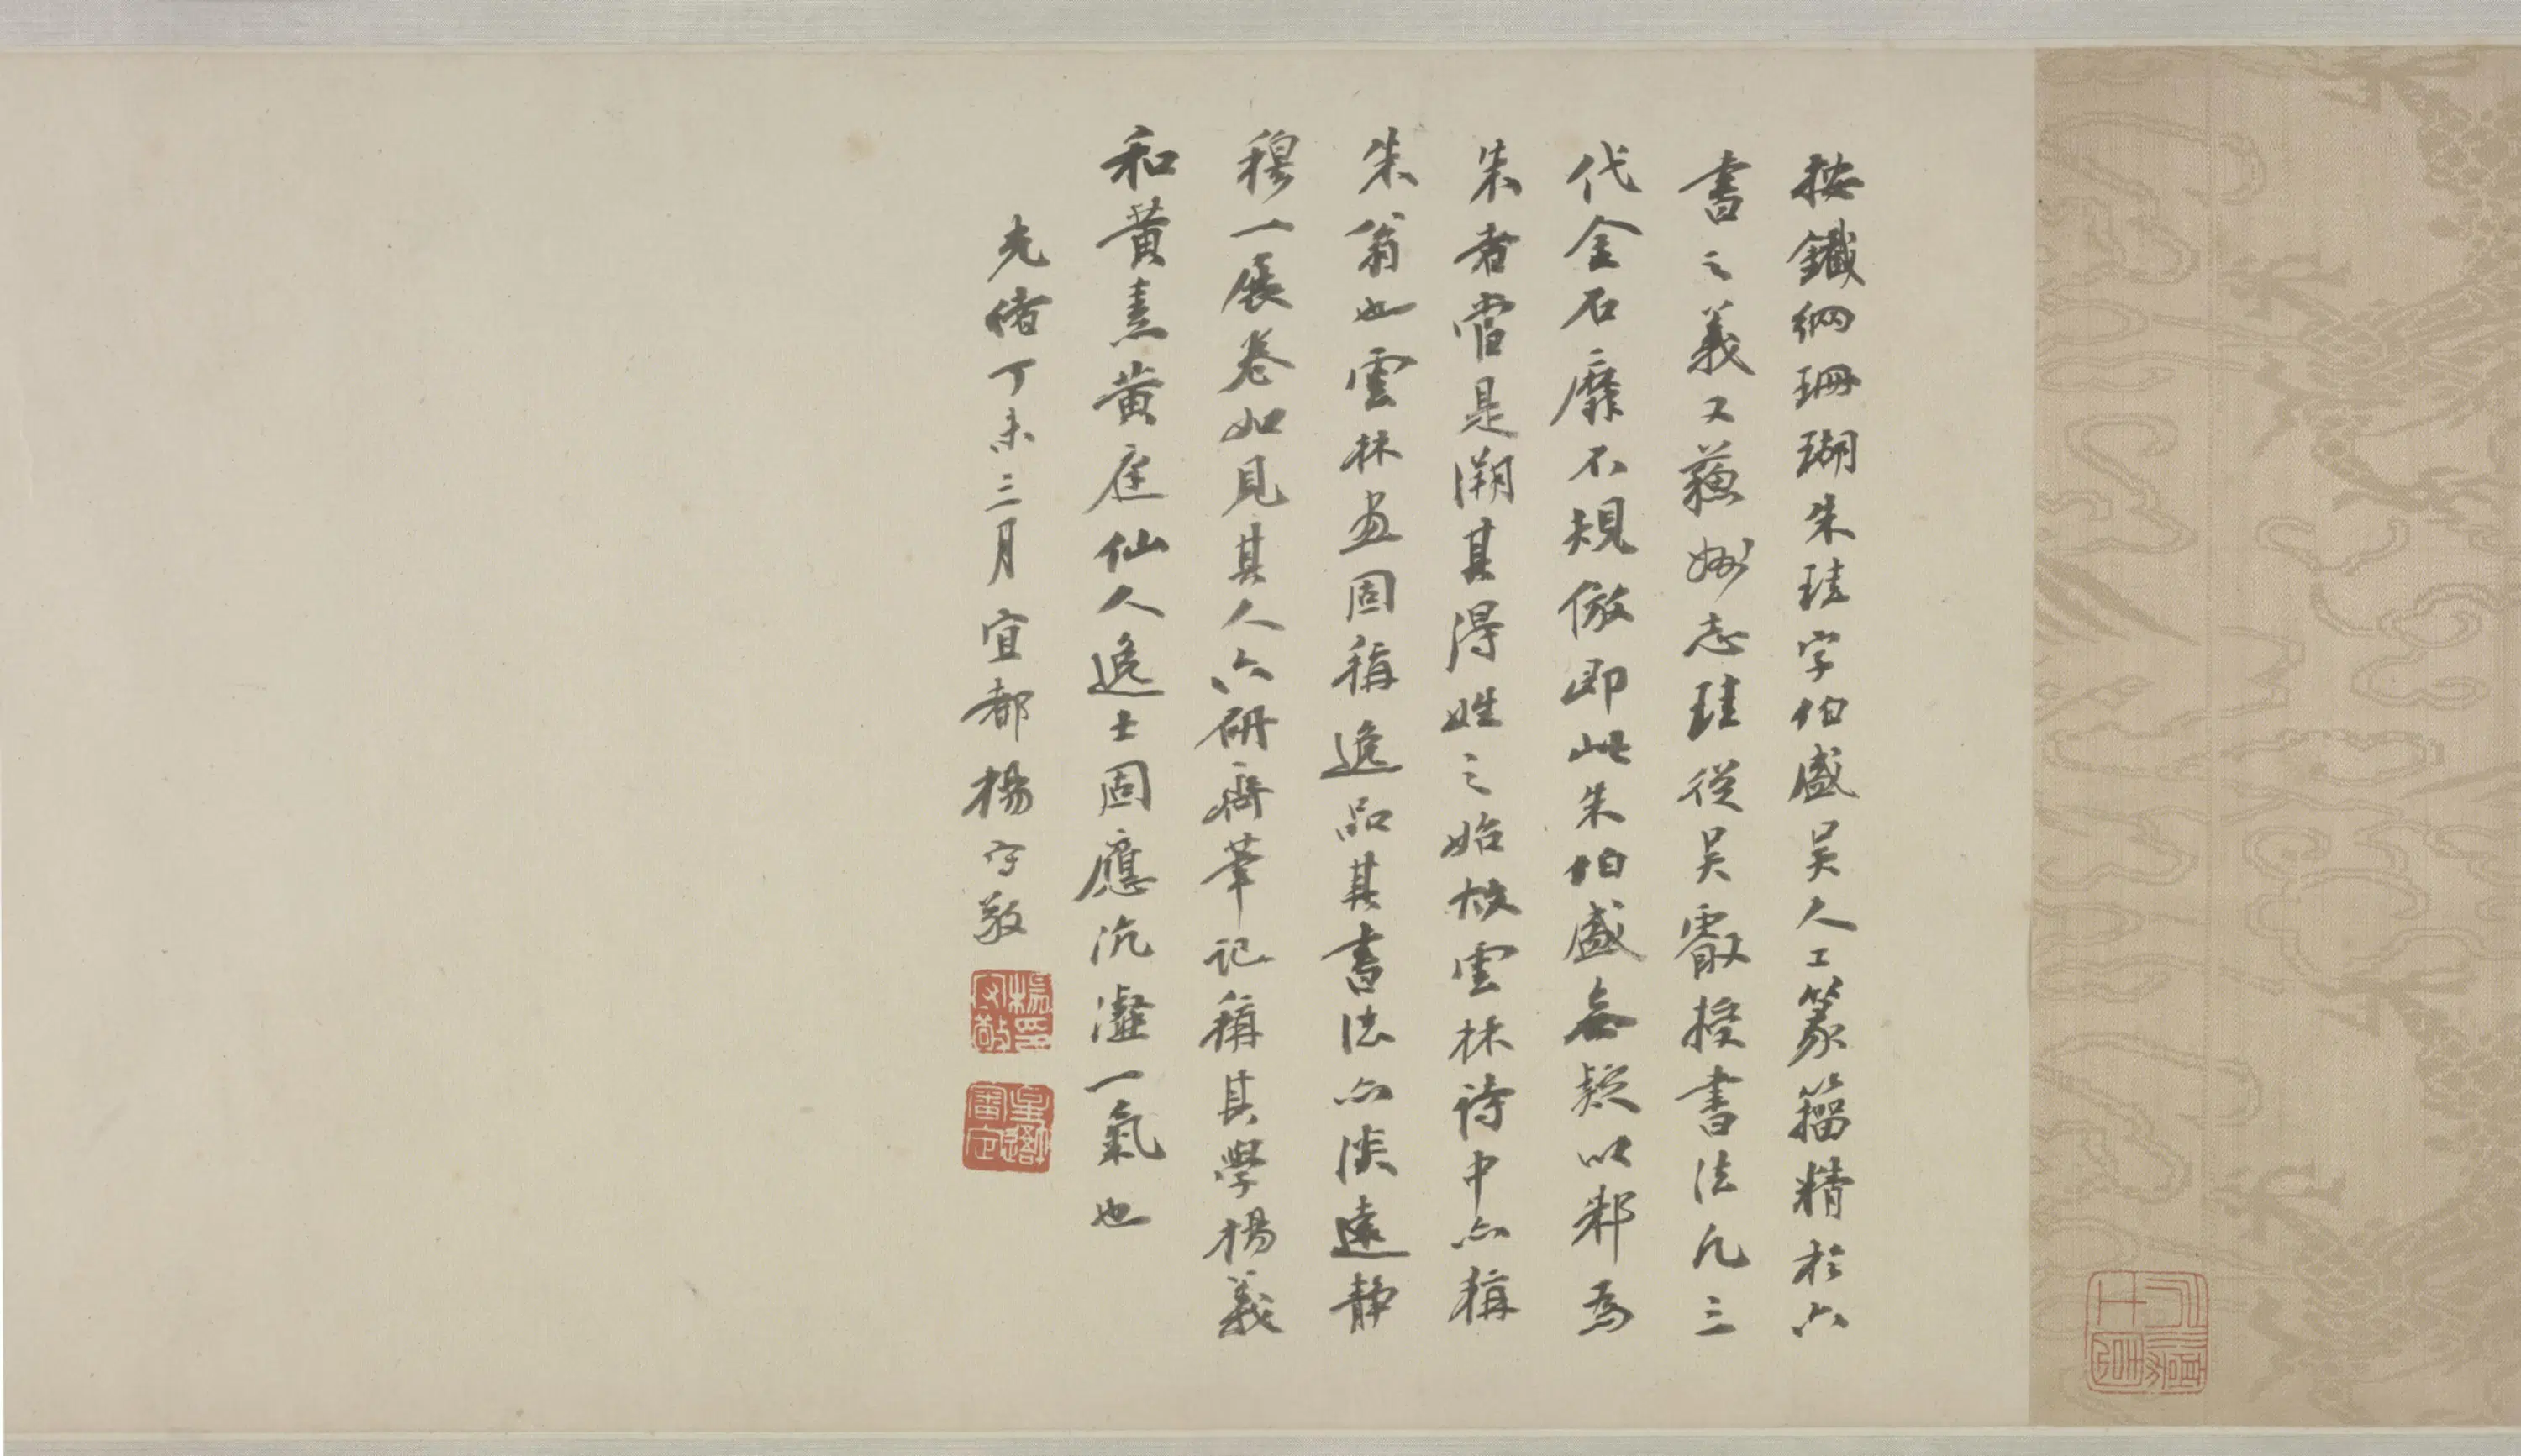 按鐵網珊瑚朱珪字伯盛吴人工篆籀精於六
書之義又蘓州志珪從吴叡授書法凡三
代金石靡不規倣即此朱伯盛無疑以邾為
朱者當是溯其得姓之始故雲林詩中亦稱
朱翁也雲林画固稱逸品其書法亦淡遠静
穆一展卷如見其人六研齋筆記稱其學楊義
和黄素黄庭仙人逸士固應沆瀣一氣也
光緒丁未三月宜都楊守敬
楊守敬印
星吾審定